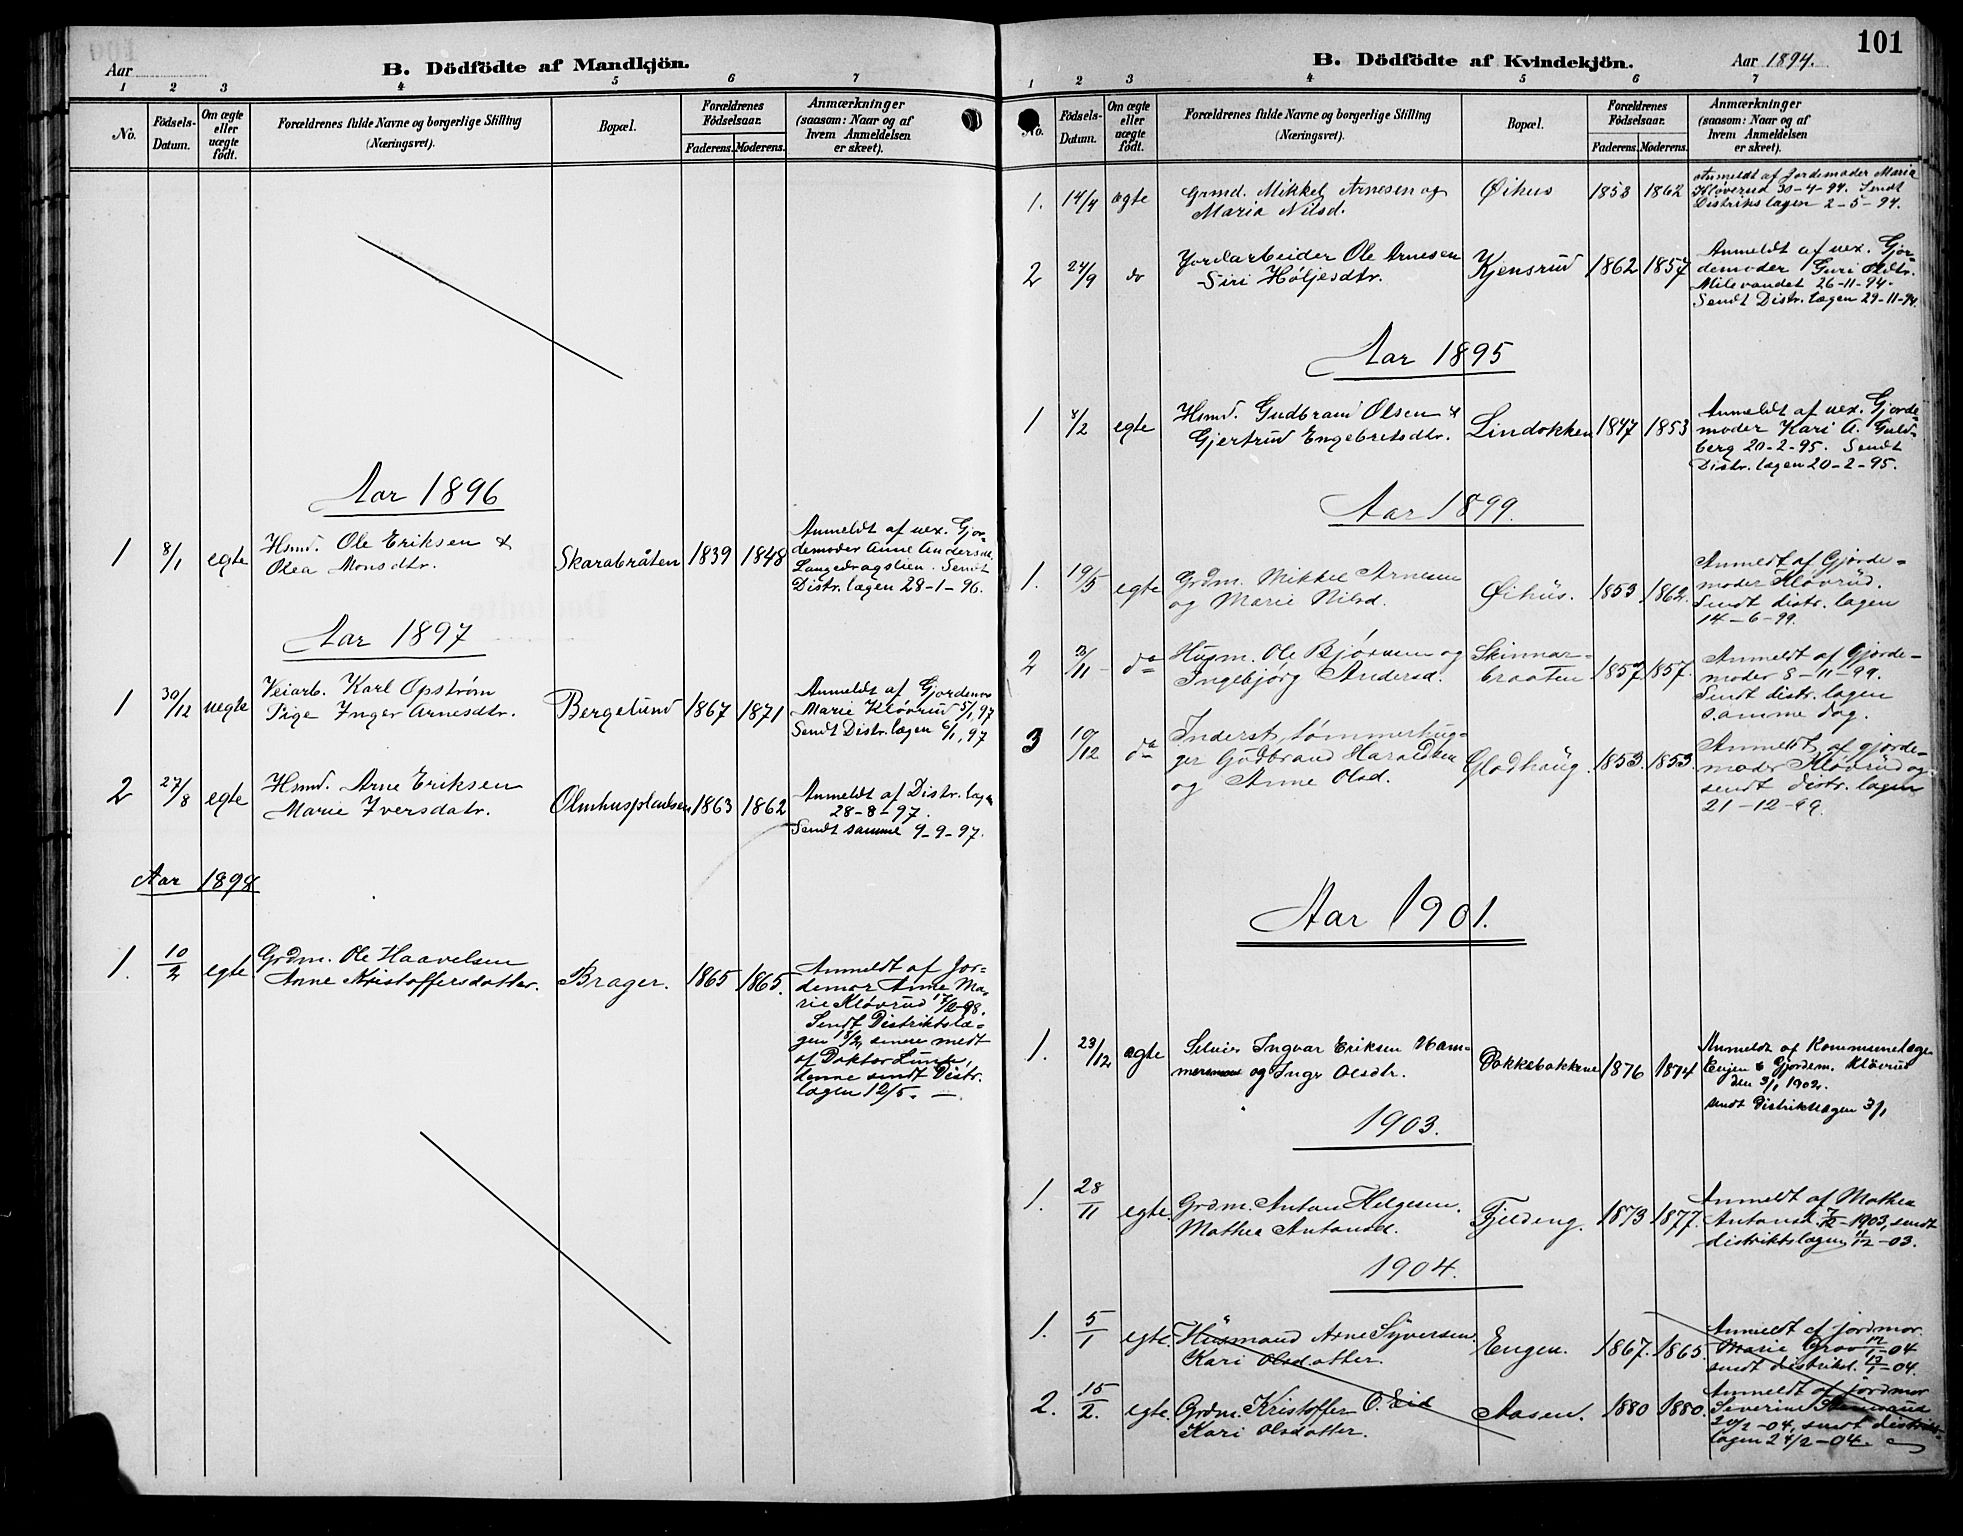 Aar
B. Dödfödte af Mandkjön.
1 2 3 4 5 6 7
No.
Födsels-
Datum.
Om ægte
eller
uægte
födt.
Forældrenes fulde Navne og borgerlige Stilling
(Næringsvei).
Bopæl.
Forældrenes
Födselsaar.
Faderens. Moderens.
Anmærkninger
(saasom: Naar og af
hvem Anmeldelsen
er skeet).
Aar 1896
1 8/1 egte Hsmd. Ole Eriksen &
Olea Monsdtr.
Skarabråten 1839 1848
Anmeldt af uex. Gjor-
demoder Anne Andersd.
Langedragslien. Sendt
Distr. lægen 28-1-96.
Aar 1897
1 30/12 uegte Veiarb. Karl Opstrøm
Pige Inger Arnesdtr.
Bergelund 1867 1871
Anmeldt af Gjordemor
Marie Kløvrud 5/1 97
Sendt Distr. lægen 6/1, 97
2 27/8 egte Hsmd. Arne Eriksen
Marie Iversdatr.
Olmhuspladsen 1863 1862
Anmeldt af Distr. læg
28-8-97.
Sendt samme 9-9-97.
Aar 1898
1. 10/2 egte Grdm. Ole Haavelsen
Anne Kristoffersdatter.
Brager. 1865 1865.
Anmeldt af Jor-
demor Anne Ma-
rie Kløvrud 17/2-98.
Sendt Distriktslæ-
gen senere medt
af Doktor Lunde,
denne sendt Distr.
lægen 12/5. —
101
B. Dödfödte af Kvindekjön.
Aar 1894.
1 2 3 4 5 6 7
No.
Födsels-
Datum.
Om ægte
eller
uægte
födt.
Forældrenes fulde Navne og borgerlige Stilling
(Næringsvei).
Bopæl.
Forældrenes
Födselsaar.
Faderens. Moderens.
Anmærkninger
(saasom: Naar og af
hvem Anmeldelsen
er skeet).
1. 14/4 ægte Grmd. Mikkel Arnesen og
Maria Nilsd.
Øihus 1853 1862
Anmeldt af Jordemoder Maria
Kløverud 30-4-94. Sendt
Distrikslægen 2-5-94.
2 24/9 do Jordarbeider Ole Arnesen
Siri Høljesdtr.
Kjensrud 1862 1857
Anmeldt af uex. Gjor-
demoder Guri Oldtr.
Milevandet 26-11-94.
Sendt Distr. lægen 29-11-94.
Aar 1895
1 8/2 egte Hsmd. Gudbrand Olsen &
Gjertrud Engebretsdtr.
Lindokken 1847 1853
Anmeldt af uex. Gjorde-
moder Kari A. Guld-
berg 20-2-95. Sendt
Distr. lægen 20-2-95.
Aar 1899.
1. 19/5 egte Grdm. Mikkel Arnesen
og Marie Nilsd.
Øihus. 1853 1862.
Anmeldt af Gjorde-
moder Kløvrud.
Sendt distr. lægen
14-6-99.
2 3/11 do Husm. Ole Bjørnsen og
Ingebjørg Andersd.
Skinnar-
braaten 1857 1857.
Anmeldt af Gjorde-
moder 8-11-99.
Sendt distr. lægen
samme dag.
3 19/12 do Inderst, tømmerhug-
ger Gudbrand Haraldsen
og Anne Olsd.
Gladhaug. 1853. 1853.
Anmeldt af gjorde-
moder Kløvrud og
sendt distr. lægen
21-12-99.
Aar 1901.
1. 23/12 ægte Ingvar Eriksen Ham-
og Inge Olsdtr.
Bakkebakkene 1876 1874
Anmeldt af Kommunelæge
& Gjordem. Kløvrud
den 3/1 1902.
sendt Distriktslægen 3/1
1903.
1. 28/11 egte. Grdm. Anton Helgesen.
Mathea Antonsd.
Fjeldeng. 1873 1877.
Anmeldt af Mathea
Antonsd. 7/12-1903, sendt
distriktslægen 11/12-03.
1904.
1. 5/1 egte. Husmand Arne Syversen.
Kari Olsdatter.
Engen. 1867. 1865.
Anmeldt af jordmor
Marie Grov 12/1-04
sendt distriktsl. 13/1-04.
2. 15/2. egte. Grdm. Kristoffer O. Eid
Kari Olsdatter.
Aasen. 1880 1880.
Anmeldt af jordmor
Severine
20/2-04, sendt distrikts-
lægen 24/2-04.